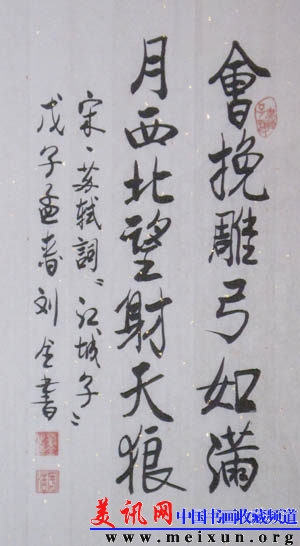 會挽雕弓如滿
月西北望射天狼
宋、苏轼詞《江城子》
戊子孟春刘全書
美讯网 中国书画收藏频道
www.meixun.org